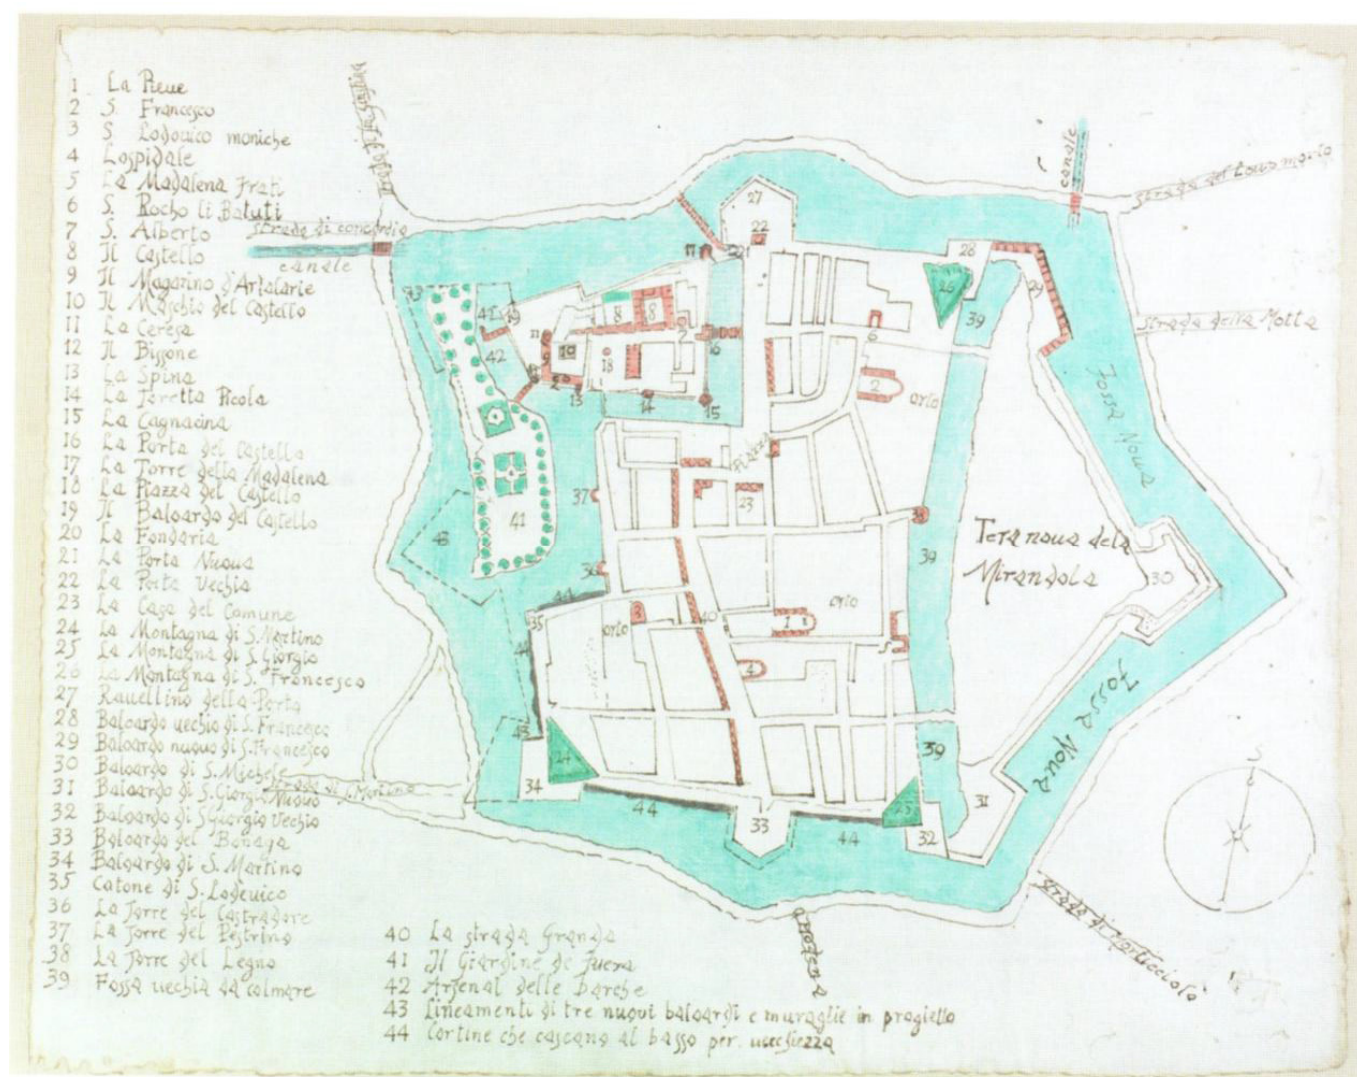 1 La Pieue
2 S. Francesco
3 S. Lodouico moniche
4 Lospidale
5 La Madalena Frati
6 S. Rocho li Batuti
7 S. Alberto
8 Il Castello
9 Il Magazino d'Artolarie
10 Il Maschio del Castello
11 La Ceresa
12 Il Bissone
13 La Spina
14 La Toretta Picola
15 La Cagnacina
16 La Porta del Castello
17 La Torre della Madalena
18 La Piazza del Castello
19 Il Baloardo del Castello
20 La Fondaria
21 La Porta Nuoua
22 La Porta Vechia
23 La Casa del Comune
24 La Montagna di S. Martino
25 La Montagna di S. Giorgio
26 La Montagna di S. Francesco
27 Rauellino della Porta
28 Baloardo uechio di S. Francesco
29 Baloardo nuouo di S. Francesco
30 Baloardo di S. Michele
31 Baloardo di S. Giorgio Nuouo
32 Baloardo di S Giorgio Vechio
33 Baloardo del
34 Baloardo di S. Martino
35 Catone di S. Lodeuico
36 La Torre del Castradore
37 La Torre del Pistrino
38 La Torre del Legno
39 Fossa uechia da colmare
40 La strada Granda
41 Il Giardine de fuera
42 Arsenal delle barche
43 Lineamenti di tre nuovi baloardi e muraglie in progietto
44 Cortine che cascano al basso per. uecchiezza
strada di concordia
canale
canale
strada della Motta
Fossa Noua
Piazza
orto
Tera noua dela
Mirandola
orto
orto
Fossa Noua
strada di S. Martino
S